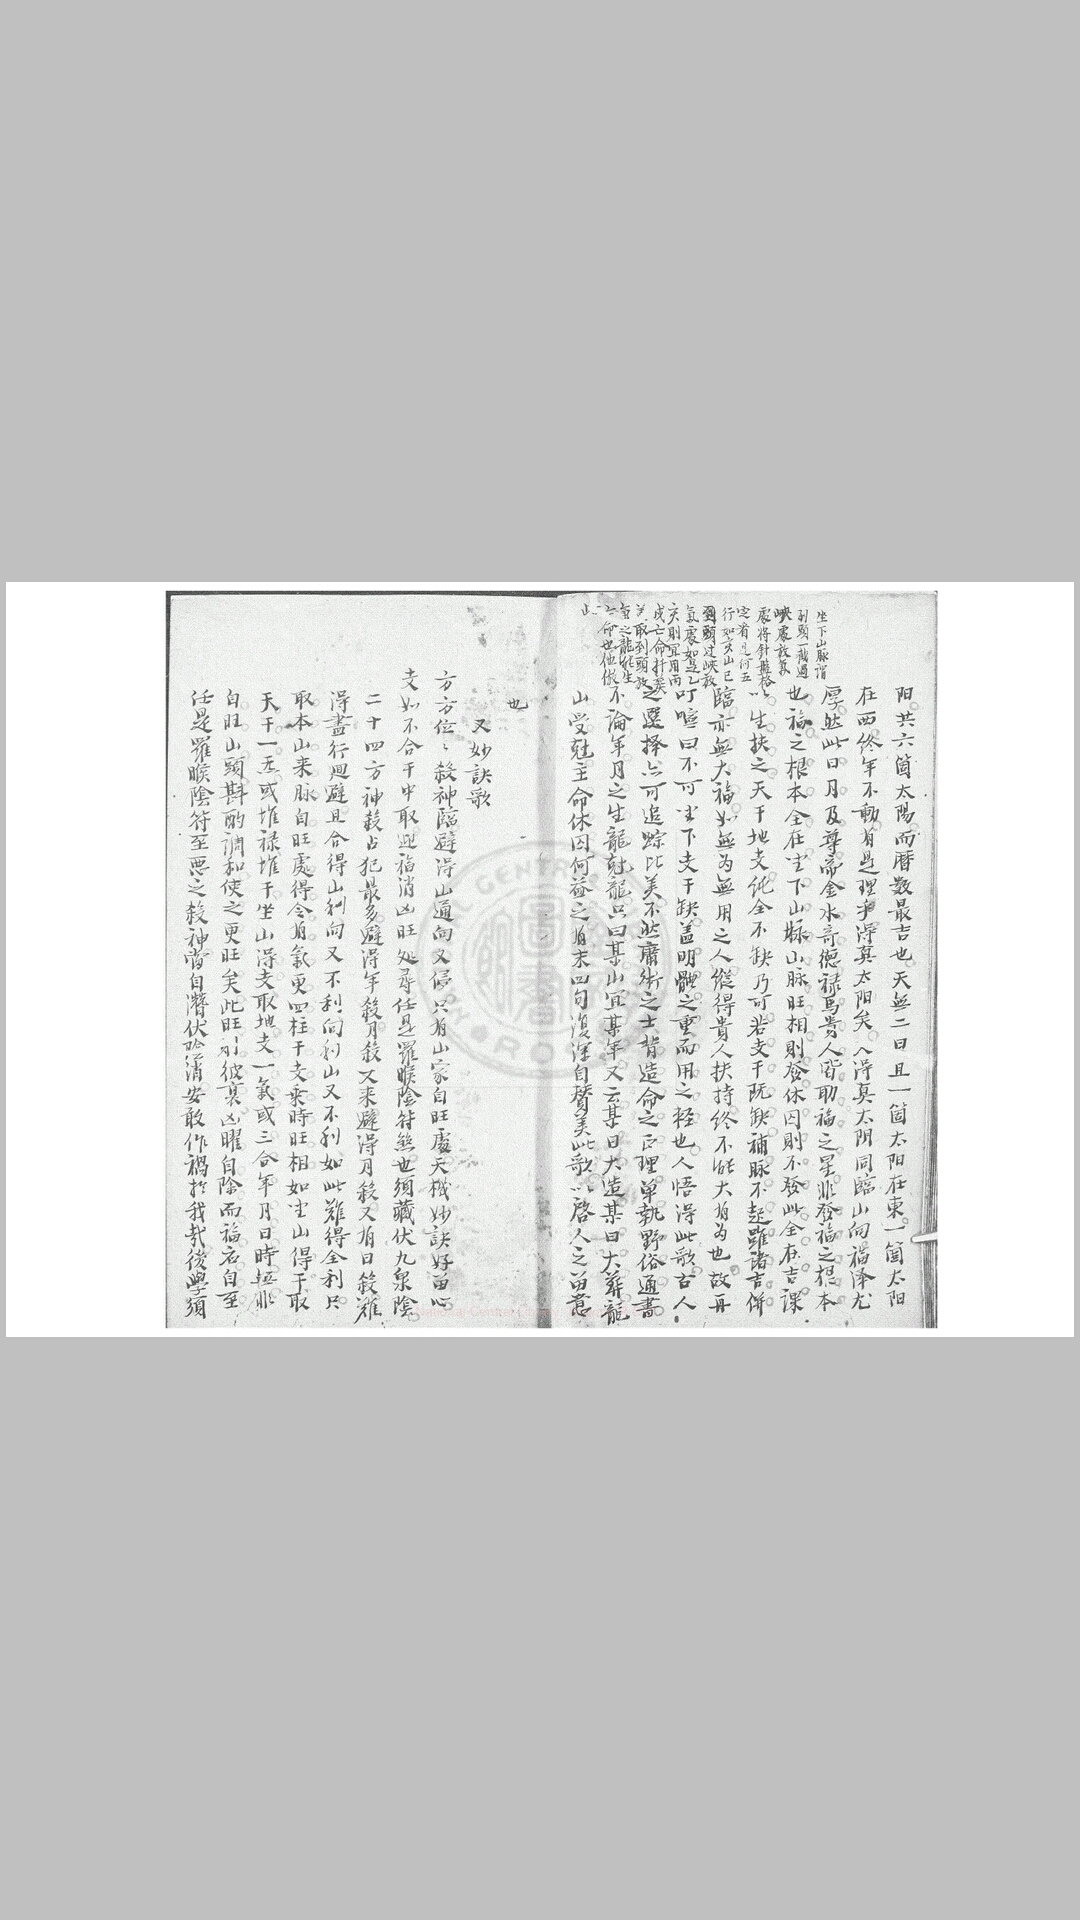 坐下山脉謂
到頭一截過
峽處放氣
處將針盤格
定看是何五
行如亥山巳
到頭過峽放
氣處如是乙
亥則宜用丙
戌亡命扦葵
取到頭放
氣之龍能生
亡命也他倣
此
阳共六箇太陽而曆数最吉也天無二日且一箇太阳在東一箇太阳
在西終年不動有是理乎淂真太阳矣入淂真太阴同臨山向福泽尤
厚然此日月及尊帝金水竒德禄馬貴人皆助福之星非發福之根本
也福之根本全在坐下山脉山脉旺相則發休囚則不發此全在吉课
以生扶之天干地支纯全不缺乃可若支干既缺補脉不起雖諸吉併
臨亦無大福如無为無用之人縱得貴人扶持终不能大有为也故再
叮嚀曰不可坐下支干缺盖明體之重而用之轻也人悟得此歌古人
之選择亦可追踪比美不然庸術之士背造命之正理单執野俗通書
不論年月之生龍尅龍只曰某山宜某年又云某日大造某日大葬龍
山受尅主命休囚何益之有末四句復深自賛美此歌以啓人之留意
也
又妙訣歌
方方位々殺神臨避淂山邉向又侵只有山家自旺處天機妙訣好留心
支如不合干中取迎福消凶旺处尋任是羅睺陰符煞也須藏伏九泉陰
二十四方神殺占犯最多避得年殺月殺又来避得月殺又有日殺难
得盡行迴避且合得山利向又不利向利山又不利如此難得全利只
取本山来脉自旺處得令有氣更四柱干支乘時旺相如坐山得干取
天干一炁或堆禄堆干坐山淂支取地支一氣或三合年月日時無非
自旺山頭斟酌調和使之更旺矣此旺則彼衰凶曜自除而福石自至
任是羅睺陰符至悪之殺神皆自潛伏於消安敢作禍於我哉後學須